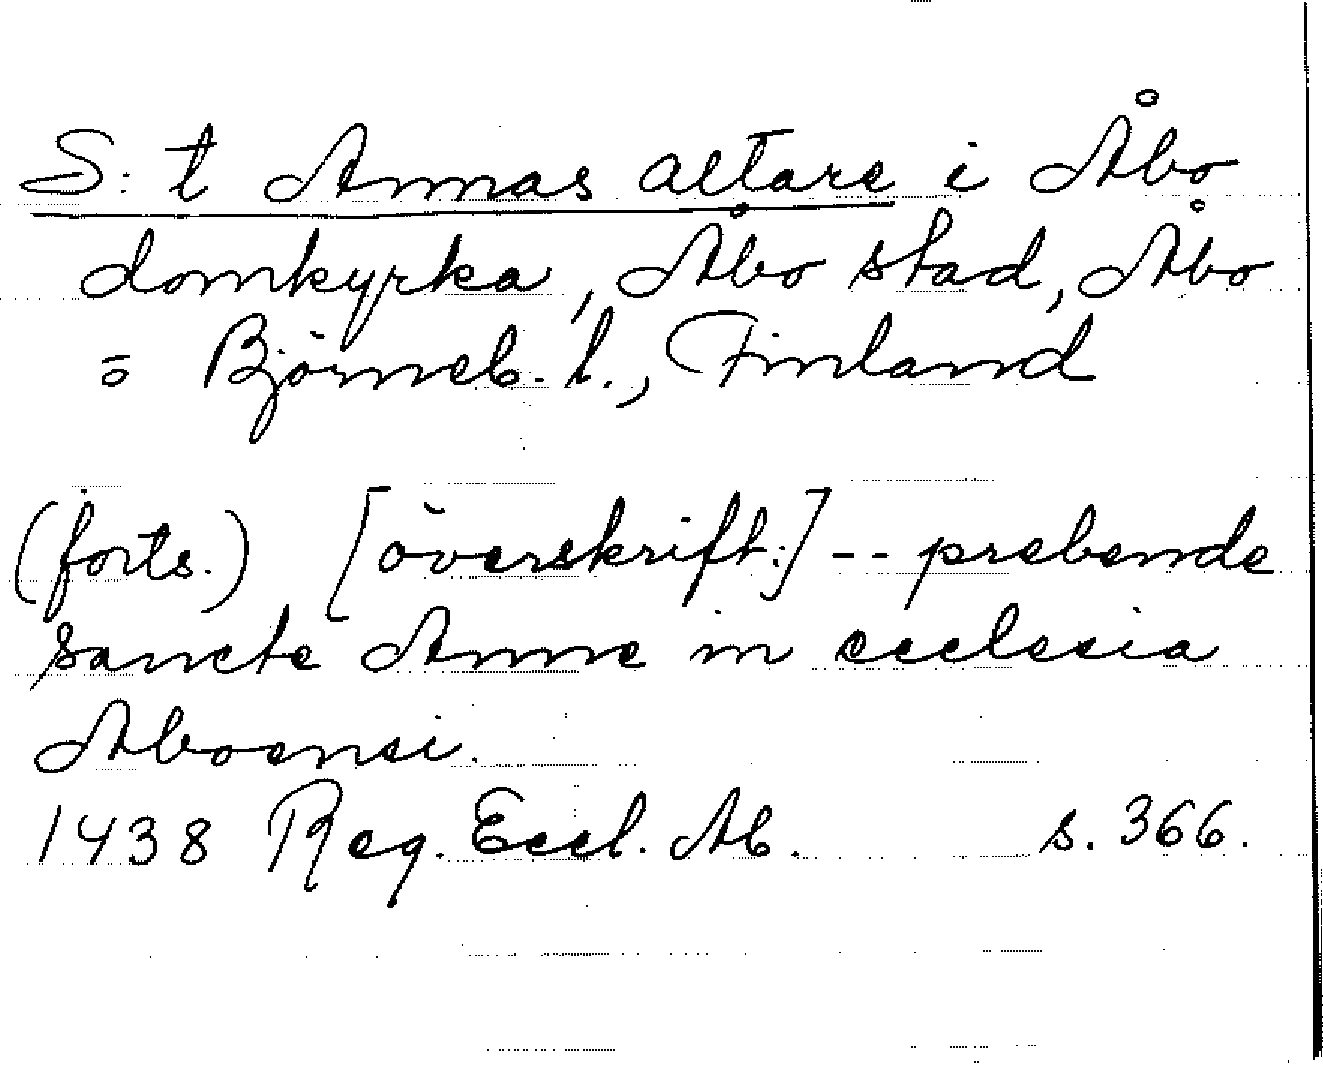 S:t Annas altare i Åbo
domkyrka, Åbo stad, Åbo
= Björneb. l., Finland
(forts.) [överskrift:] -- prebende
sancte Anne in ecclesia
Aboensi.
1438 Reg. Eccl. Ab. s. 366.